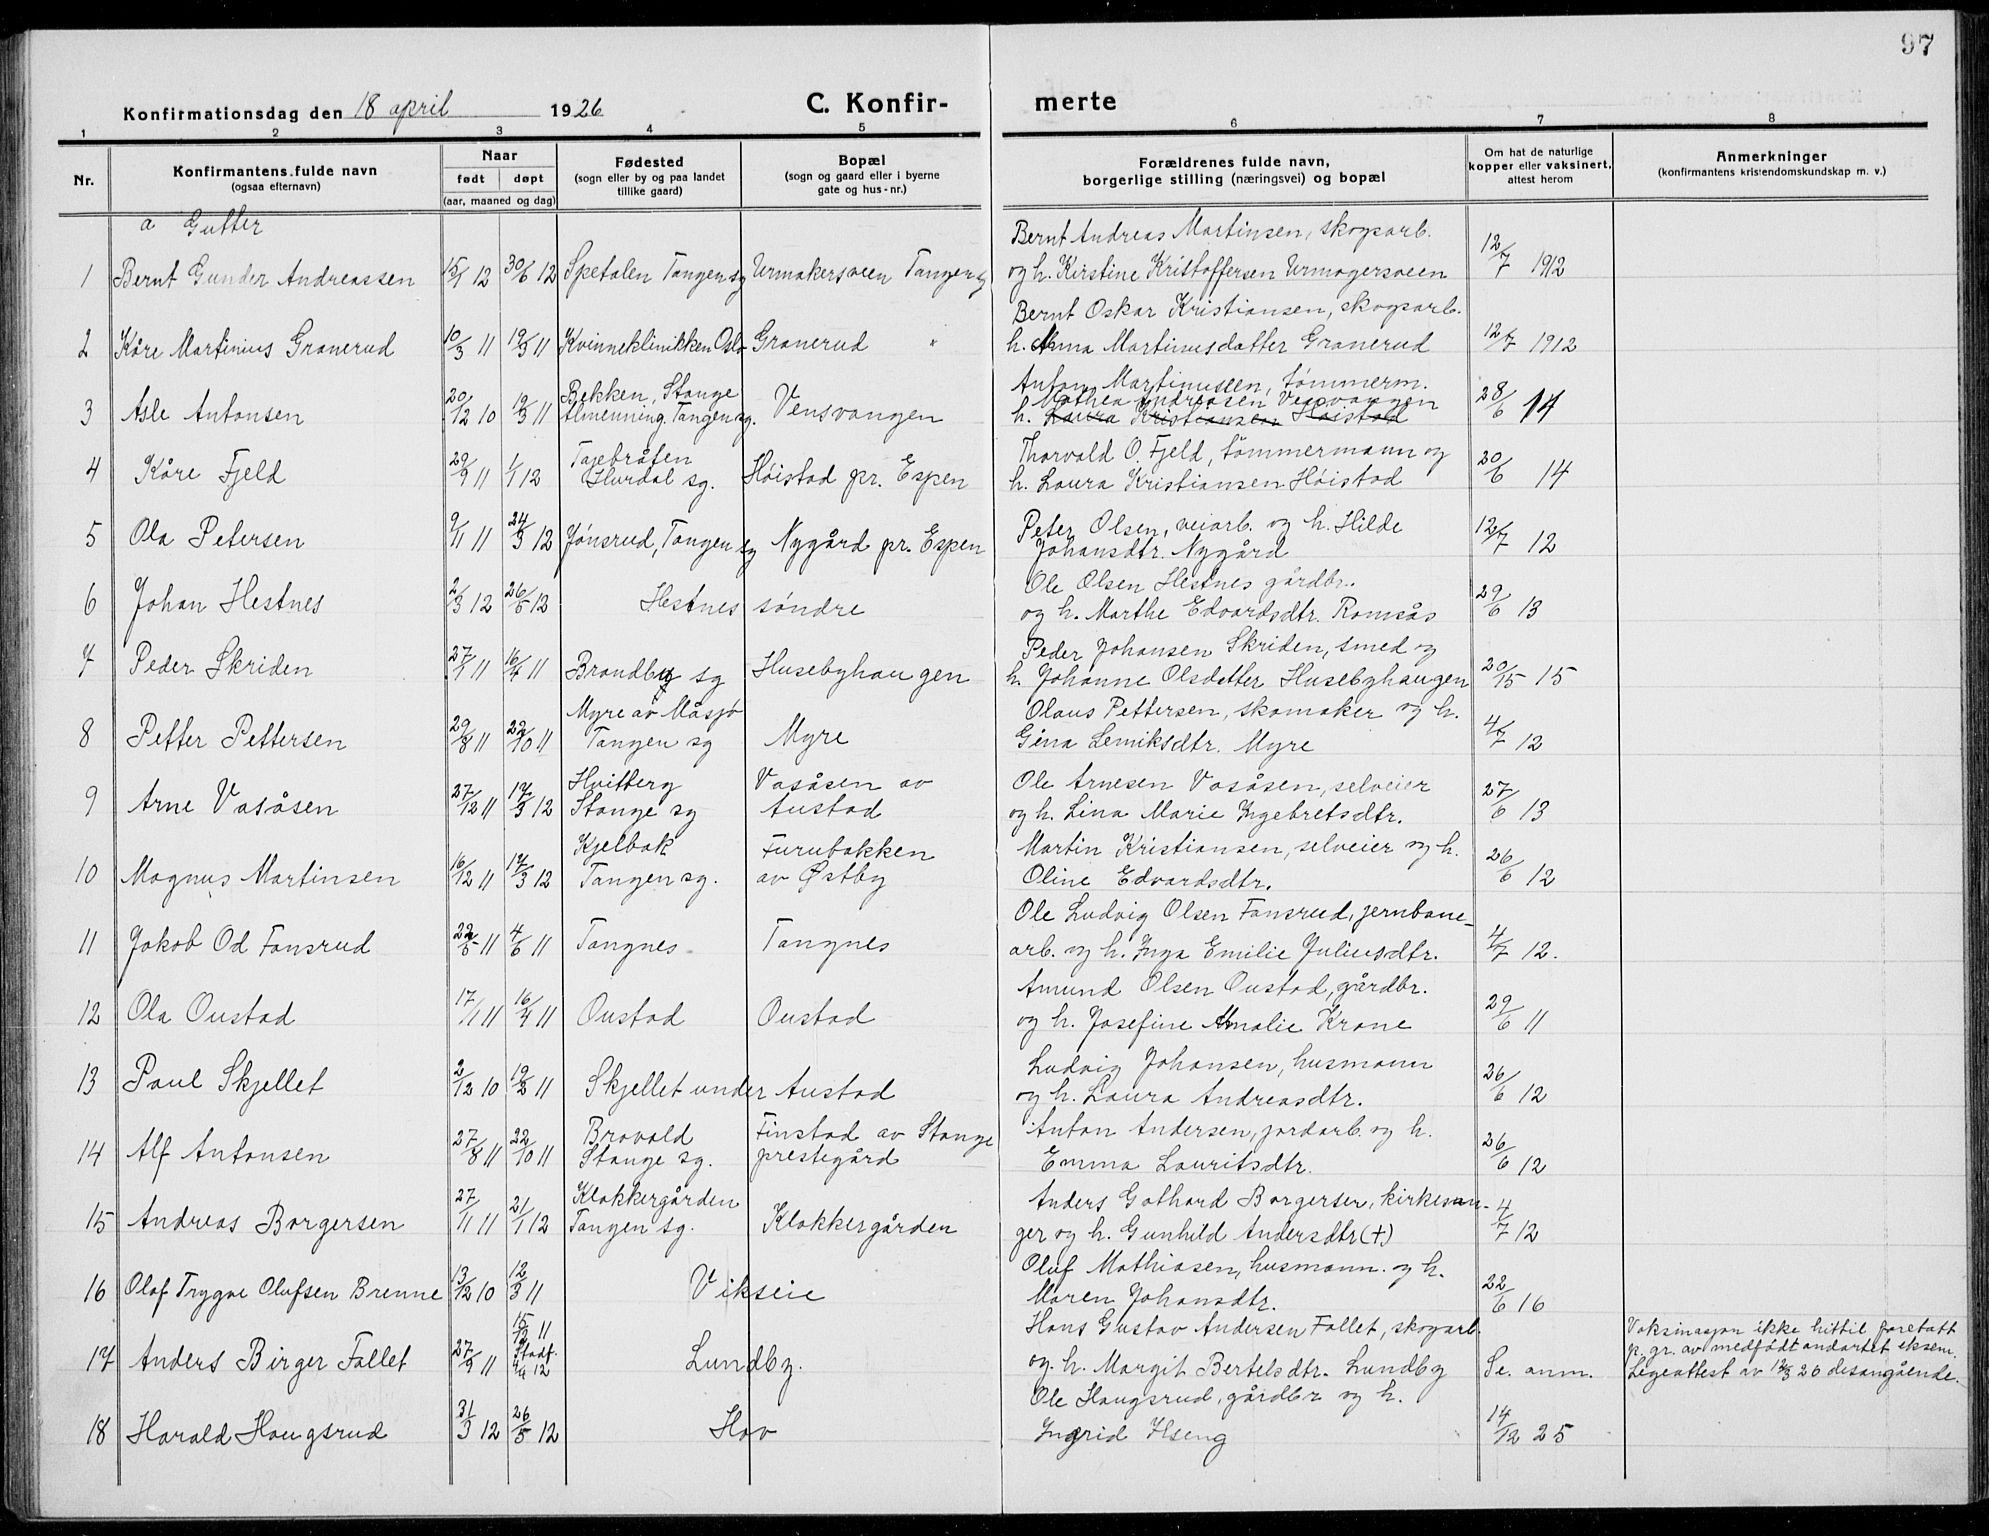 97
Konfirmationsdag den 18 april 1926 C. Konfir- merte
1 2 3 4 5 6 7 8
Nr.
Konfirmantens fulde navn
(ogsaa efternavn)
Naar
født døpt
(aar, maaned og dag)
Fødested
(sogn eller by og paa landet
tillike gaard)
Bopæl
(sogn og gaard eller i byerne
gate og hus-nr.)
Forældrenes fulde navn,
borgerlige stilling (næringsvei) og bopæl
Om hat de naturlige
kopper eller vaksinert,
attest herom
Anmerkninger
(konfirmantens kristendomskundskap m. v.)
a Gutter
Bernt Andreas Martinsen, skogsarb.
1 Bernt Gunder Andreassen 15/1 12 30/6 12 Spetalen Tangen sg Urmakersveen Tangen sg og h. Kirstine Kristoffersen Urmagersveen 12/7 1912
Bernt Oskar Kristiansen, skogsarb.
2 Kåre Martinius Granerud 10/3 11 19/3 11 Kvinneklinikken Oslo Granerud " h. Anna Martinusdatter Granerud 12/7 1912
Bekken, Stange Anton Martinussen, tømmerm.
Mathea Andreasen Vensvangen
3 Asle Antonsen 20/12 10 19/3 11 Almenning, Tangen sg. Vensvangen h. Laura Kristiansen Høistad 28/6 14
Tajebråten Thorvald O. Fjeld, tømmermann og
4 Kåre Fjeld 29/9 11 1/1 12 Hurdal sg. Høistad pr. Espen h. Laura Kristiansen Høistad 20/6 14
Peter Olsen, veiarb. og h. Hilde
5 Ola Petersen 9/11 11 24/3 12 Jønsrud, Tangen sg Nygård pr. Espen Johansdtr. Nygård 12/7 12
Ole Olsen Hestnes gårdbr.
6 Johan Hestnes 2/3 12 26/5 12 Hestnes søndre og h. Marthe Edvardsdtr. Romsås 29/6 13
Peder Johansen Skriden, smed og
7 Peder Skriden 27/1 11 16/4 11 Brandbu sg Husebyhaugen h. Johanne Olsdatter Husebyhaugen 20/15 15
Myre av Måsjø Olaus Pettersen, skomaker og h.
8 Petter Pettersen 29/8 11 22/10 11 Tangen sg Myre Gina Lemiksdtr. Myre 4/7 12
Hvitberg Vasåsen av Ole Arnesen Vasåsen, selveier
9 Arne Vasåsen 27/12 11 17/3 12 Stange sg Austad og h. Lina Marie Ingebretsdtr. 27/6 13
Kjelbak Furubakken Martin Kristiansen, selveier og h.
10 Magnus Martinsen 16/12 11 17/3 12 Tangen sg. av Østby Oline Edvardsdtr. 26/6 12
Ole Ludvig Olsen Fansrud, jernbane-
11 Jakob Od Fansrud 22/5 11 4/6 11 Tangnes Tangnes arb. og h. Inga Emilie Juliusdtr. 4/7 12.
Amund Olsen Oustad, gårdbr.
12 Ola Oustad 17/1 11 16/4 11 Oustad Oustad og h. Josefine Amalie Krane 29/6 11
Ludvig Johansen, husmann
13 Paul Skjellet 2/12 10 19/2 11 Skjellet under Austad og h. Laura Andreasdtr. 26/6 12
Bravald Finstad av Stange Anton Andersen, jordarb. og h.
14 Alf Antonsen 27/8 11 22/10 11 Stange sg. prestegård Emma Lauritsdtr. 26/6 12
Klokkergården Anders Gothard Borgersen, kirkesan-
15 Andreas Borgersen 27/11 11 21/1 12 Tangen sg. Klokkergården ger og h. Gunhild Andersdtr (+) 4/7 12
Oluf Mathiasen, husmann. og h.
16 Olaf Trygve Olufsen Brenne 13/12 10 12/3 11 Vikseie Maren Johansdtr. 22/6 16
15/12 11 Hans Gustav Andersen Fallet, skogarb. Vaksinasjon ikke hittil foretatt
17 Anders Birger Fallet 27/9 11 Stadf. 12 Lundby. og. h. Margit Bertelsdtr. Lundby Se. anm. p. gr. av medfødt andartet eksem.
Legeattest av 12/3 26 desangående.
Ole Haugsrud, gårdbr og h.
18 Harald Haugsrud 31/3 12 26/5 12 Hov Ingrid Hseng 14/12 25